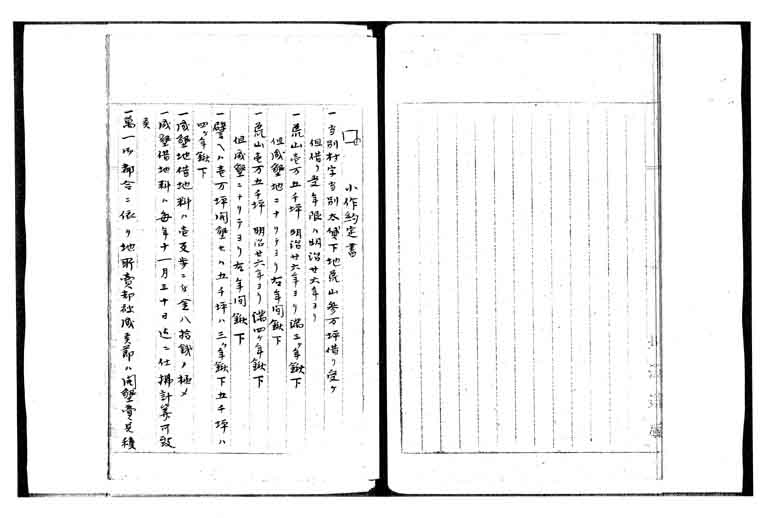 小作約定書
一当別村字当別太貸下地荒山参万坪借り受ケ
但借り受年限ハ明治廿六年ヨリ
一荒山壱万五千坪 明治廿六年ヨリ満三ヶ年鍬下
但成墾地ニナリテヨリ右年間鍬下
一荒山壱万五千坪 明治廿六年ヨリ満四ヶ年鍬下
但成墾ニナリテヨリ右年間鍬下
一譬ヘハ壱万坪開墾セハ五千坪ハ三ヶ年鍬下五千坪ハ
四ヶ年鍬下
一成墾地借地料ハ壱反歩ニ付金八拾銭ノ極メ
一成墾借地料ハ毎年十一月三十日迄ニ仕拂計算可致
事
一萬一御都合ニ依り地所賣却社成候節ハ開墾費見積